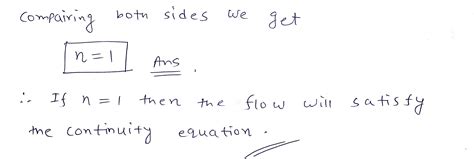 Compairing both sides we get
n = 1 Ans.
∴ If n = 1 then the flow will satisfy
the continuity equation.